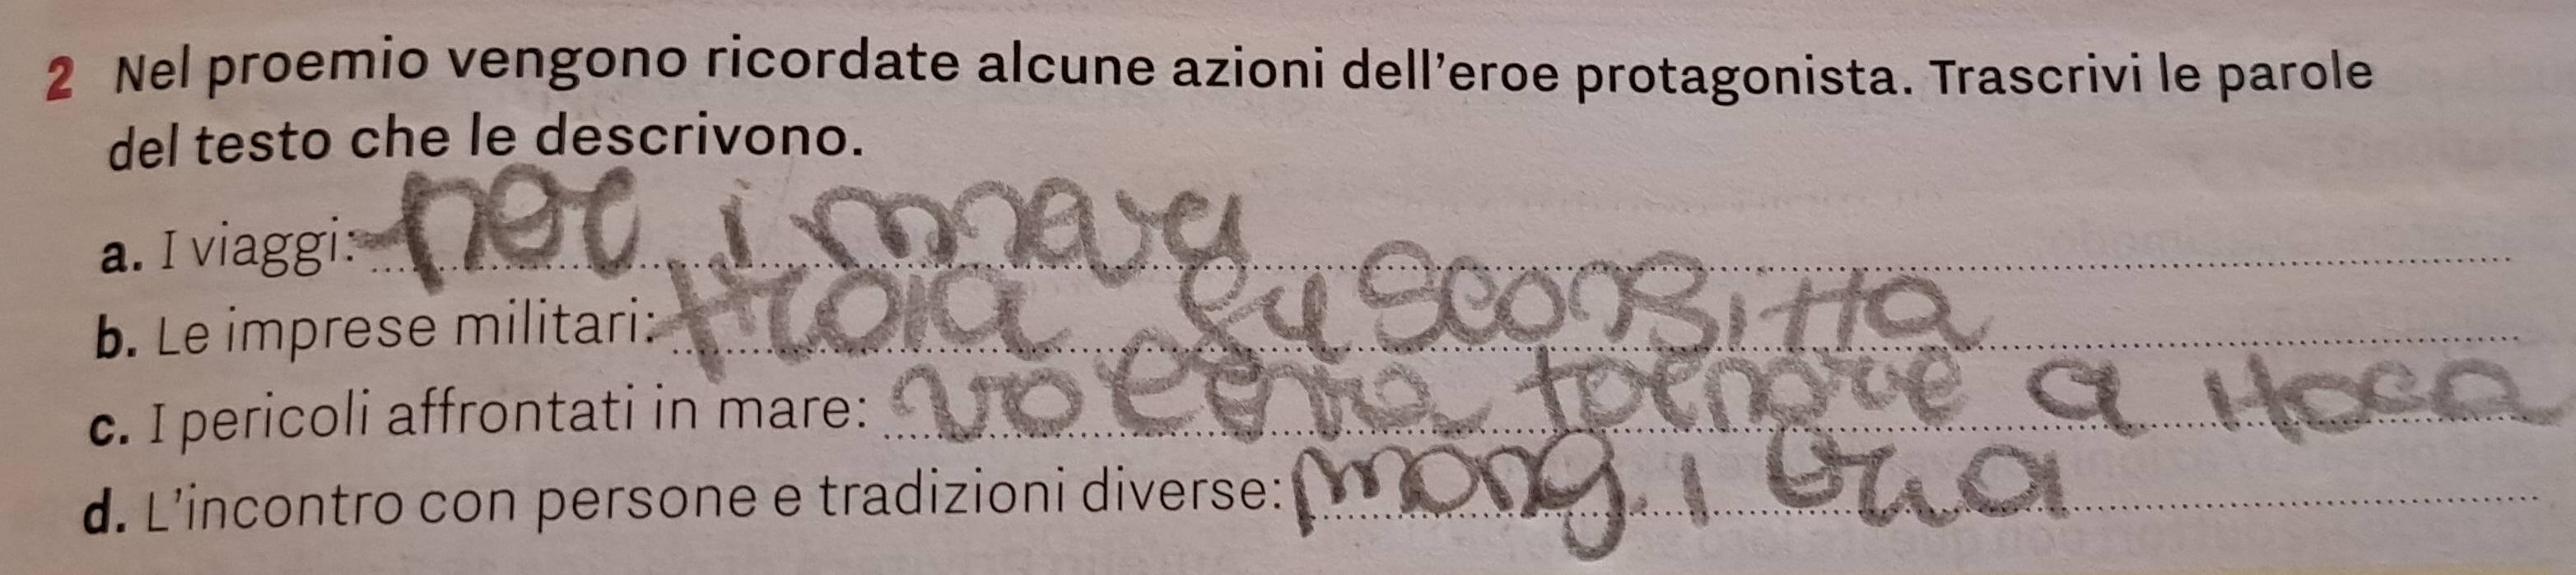 2 Nel proemio vengono ricordate alcune azioni dell'eroe protagonista. Trascrivi le parole
del testo che le descrivono.
a. I viaggi: per i mari
b. Le imprese militari: troia fu sconfitta
c. I pericoli affrontati in mare: tornare a Itaca
d. L'incontro con persone e tradizioni diverse: